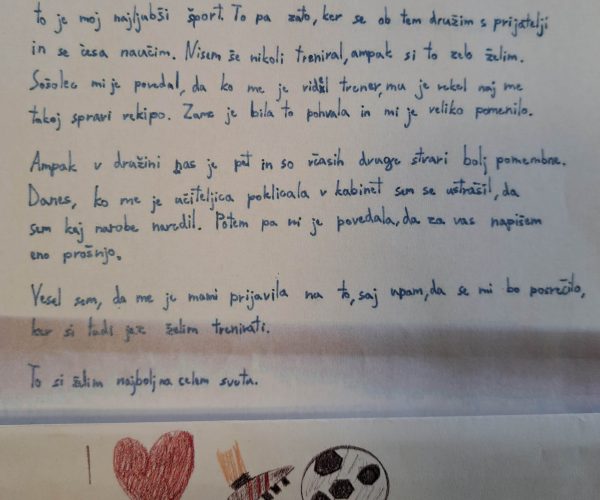 to je moj najljubši šport. To pa zato, ker se ob tem družim s prijatelji
in se česa naučim. Nisem še nikoli treniral, ampak si to zelo želim.
Sošolec mi je povedal, da ko me je videl trener, mu je rekel naj me
takoj spravi v ekipo. Zame je bila to pohvala in mi je veliko pomenilo.
Ampak v družini nas je pet in so včasih druge stvari bolj pomembne.
Danes, ko me je učiteljica poklicala v kabinet sem se ustrašil, da
sem kaj narobe naredil. Potem pa mi je povedala, da za vas napišem
eno prošnjo.
Vesel sem, da me je mami prijavila na to, saj upam, da se mi bo posrečilo,
ker si tudi jaz želim trenirati.
To si želim najbolj na celem svetu.